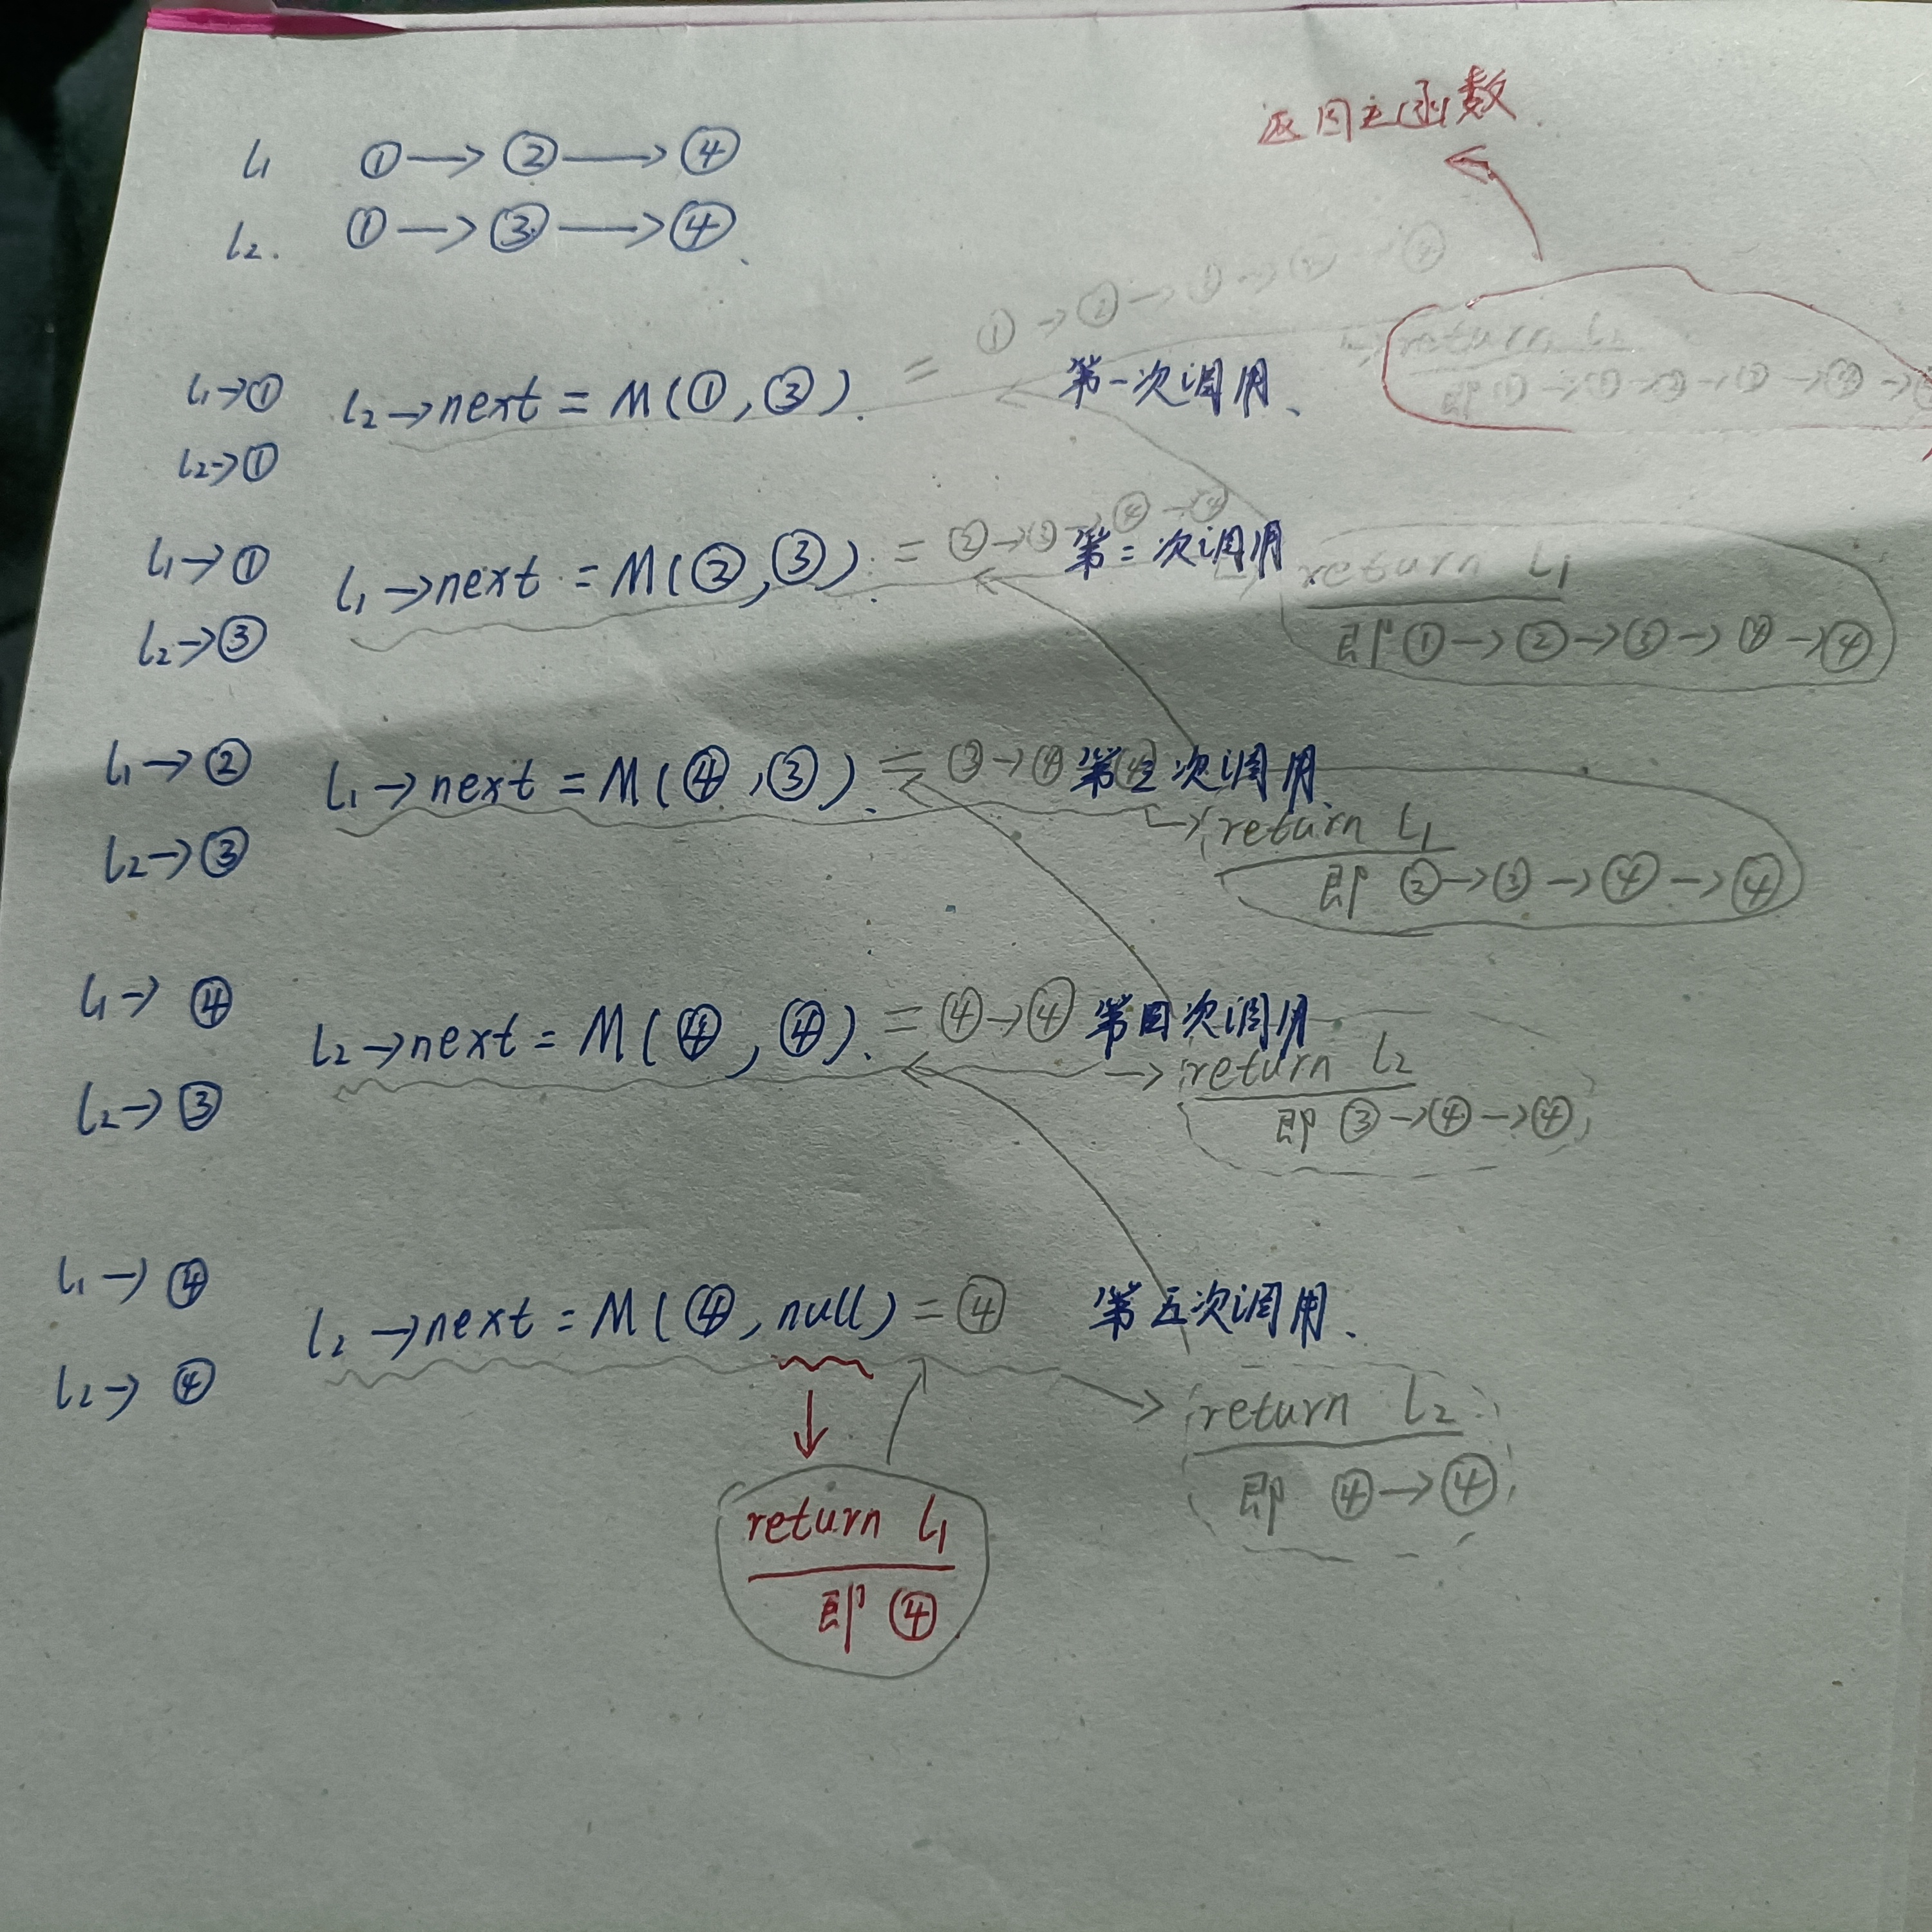 返回主函数
l1 ①→②→④
l2. ①→③→④
= ①→②→③→④→④
l1→① l2→next = M(①,③). 第一次调用、
l2→①
→return l2
即①→①→②→③→④→
l1→① l1→next = M(②,③). = ②→③→④→④ 第二次调用
l2→③
→return l1
即①→②→③→④→④
l1→② l1→next = M(④,③). = ③→④ 第三次调用、
l2→③
→return l1
即 ②→③→④→④
l1→④ l2→next = M(④,④). = ④→④ 第四次调用
l2→③
→return l2
即 ③→④→④
l1→④ l2→next = M(④,null) = ④ 第五次调用、
l2→④
return l2
即 ④→④
return l1
即 ④